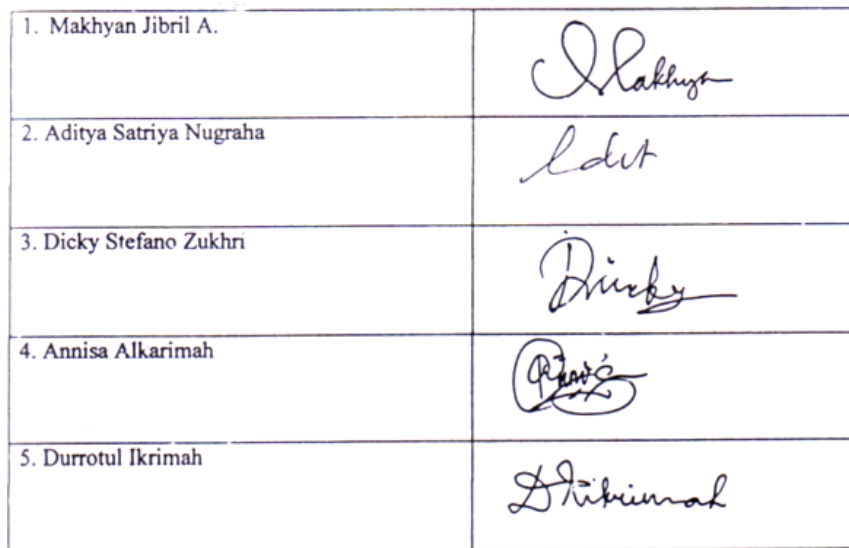 1. Makhyan Jibril A.
Makhyan
2. Aditya Satriya Nugraha
Adit
3. Dicky Stefano Zukhri
Dicky
4. Annisa Alkarimah
5. Durrotul Ikrimah